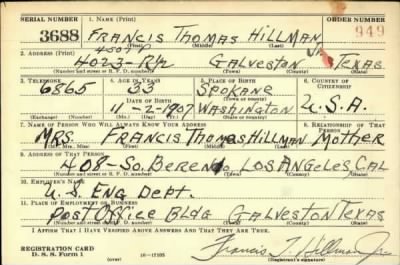 SERIAL NUMBER 1. NAME (Print) ORDER NUMBER
3688 FRANCIS THOMAS HILLMAN Jr. 949
(First) (Middle) (Last)
2. ADDRESS (Print)
4023-R½ GALVESTON TEXAS
(Number and street or R. F. D. number) (Town) (County) (State)
3. TELEPHONE 4. AGE IN YEARS 5. PLACE OF BIRTH 6. COUNTRY OF CITIZENSHIP
6865 33 SPOKANE
(Town or county)
DATE OF BIRTH
11-2-1907 WASHINGTON U.S.A.
(Exchange) (Number) (Mo.) (Day) (Yr.) (State or country)
7. NAME OF PERSON WHO WILL ALWAYS KNOW YOUR ADDRESS 8. RELATIONSHIP OF THAT PERSON
MRS. FRANCIS THOMAS HILLMAN MOTHER
(Mr., Mrs., Miss) (First) (Middle) (Last)
9. ADDRESS OF THAT PERSON
408-SO. BERENDO LOS ANGELES, CAL
(Number and street or R. F. D. number) (Town) (County) (State)
10. EMPLOYER'S NAME
U.S. ENG DEPT.
11. PLACE OF EMPLOYMENT OR BUSINESS
POST OFFICE BLDG GALVESTON TEXAS
(Number and street or R. F. D. number) (Town) (County) (State)
I AFFIRM THAT I HAVE VERIFIED ABOVE ANSWERS AND THAT THEY ARE TRUE.
REGISTRATION CARD
D. S. S. Form 1 16-17105 Francis T. Hillman Jr.